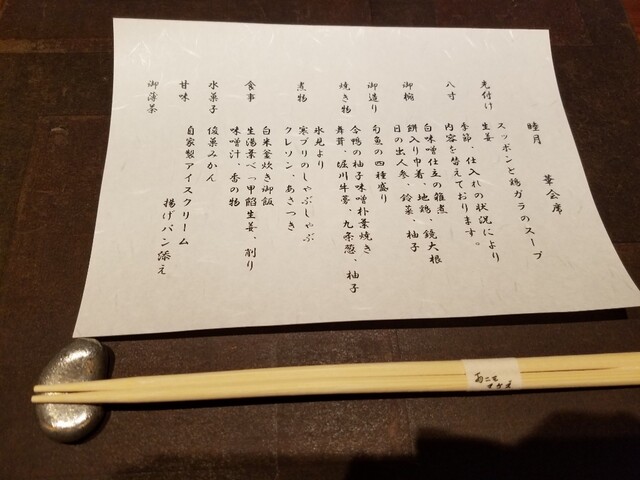 睦月 華会席
先付け スッポンと鶏ガラのスープ
生姜
八寸 季節、仕入れの状況により
内容を替えております。
御椀 白味噌仕立の雑煮
餅入り巾着、地鶏、鏡大根
日の出人参、鈴菜、柚子
御造り 旬魚の四種盛り
焼き物 合鴨の柚子味噌朴葉焼き
舞茸、堀川牛蒡、九条葱、柚子
煮物 氷見より
寒ブリのしゃぶしゃぶ
クレソン、あさつき
食事 白米釜炊き御飯
生湯葉べっ甲餡生姜、削り
味噌汁、香の物
水菓子 俊菓みかん
甘味 自家製アイスクリーム
揚げパン添え
御薄茶